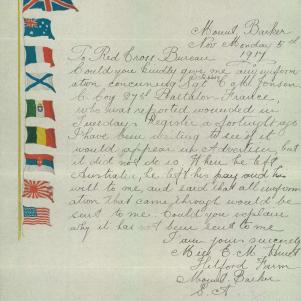 Mount Barker
Nov Monday 5th
1917
To Red Cross Bureau
Could you kindly give me any inform
ation concerning Sgt
C Coy 27th Battalion
who was reported wounded in
Tuesday's Register a fortnight ago
I have been waiting to see if it
would appear in Advertiser, but
it did not do so. When he left
Australia, he left his pay and his
will to me, and said that all inform
ation that came through would be
sent to me. Could you explain
why it has not been sent to me
I am yours sincerely
Miss E. M.
Farm
Mount Barker
S. A